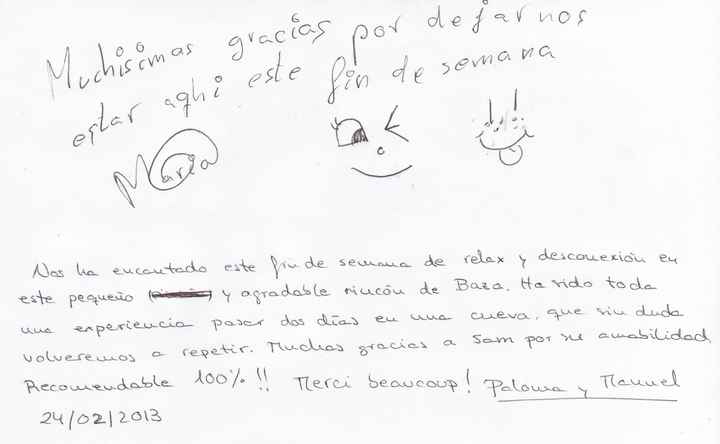 Muchisimas gracias por dejarnos
estar aqhi este fin de semana
Maria
Nos ha encantado este fin de semana de relax y desconexión en
este pequeño y agradable rincón de Baza. Ha sido toda
una experiencia pasar dos días en una cueva, que sin duda
volveremos a repetir. Muchas gracias a Sam por su amabilidad
Recomendable 100% !! Merci beaucoup! Paloma y Manuel
24/02/2013